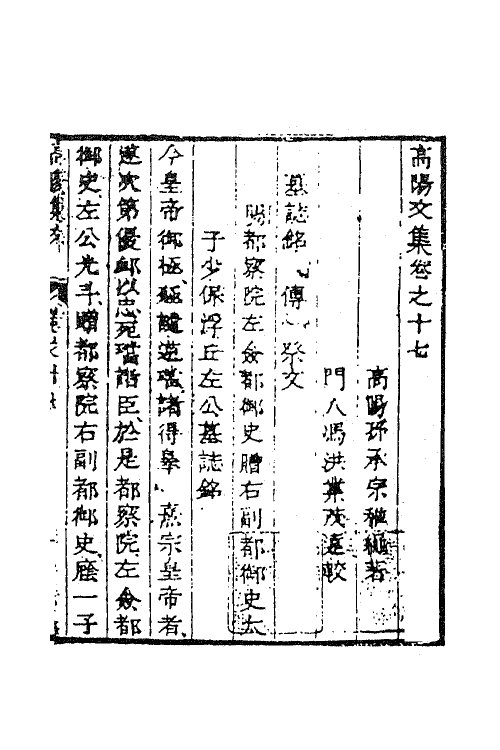 高陽文集卷之十七
高陽孫承宗稚繩著
門人馮洪業茂遠較
墓誌銘 傳 祭文
賜都察院左僉都御史贈右副都御史太
子少保浮丘左公墓誌銘
今皇帝御極 逆璫諸得辠 熹宗皇帝者
遂次第優卹以忠死璫諸臣於是都察院左僉都
御史左公光斗贈都察院右副都御史廕一子